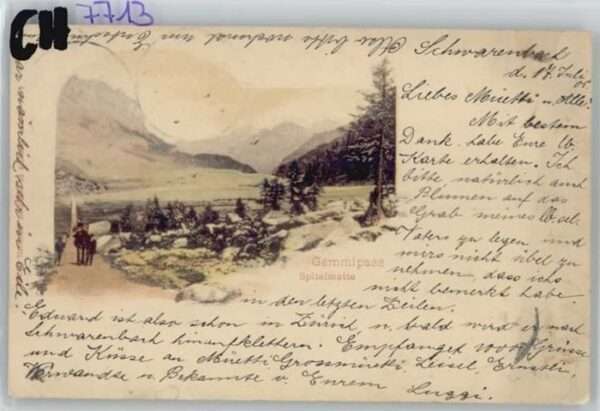 CH
7713
Schwarenbach
d. 17. Juli
05
Liebes Müetti u. Alle!
Mit bestem
Dank habe Eure lb.
Karte erhalten. Ich
bitte natürlich auch
Blumen auf das
Grab meines l. sel.
Vaters zu legen und
mirs nicht übel zu
nehmen, dass ichs
nicht bemerkt habe
in den letzten Zeilen.
Eduard ist also schon in Zürich u. bald wird er nach
Schwarenbach hinaufklettern. Empfanget 1000 Grüsse
und Küsse an Müetti, Grossmüetti, Liesel, Ernstli,
Verwandte u. Bekannte v. Eurem Luggi.
Also bitte nochmal um
Gemmipass
Spitalmatte